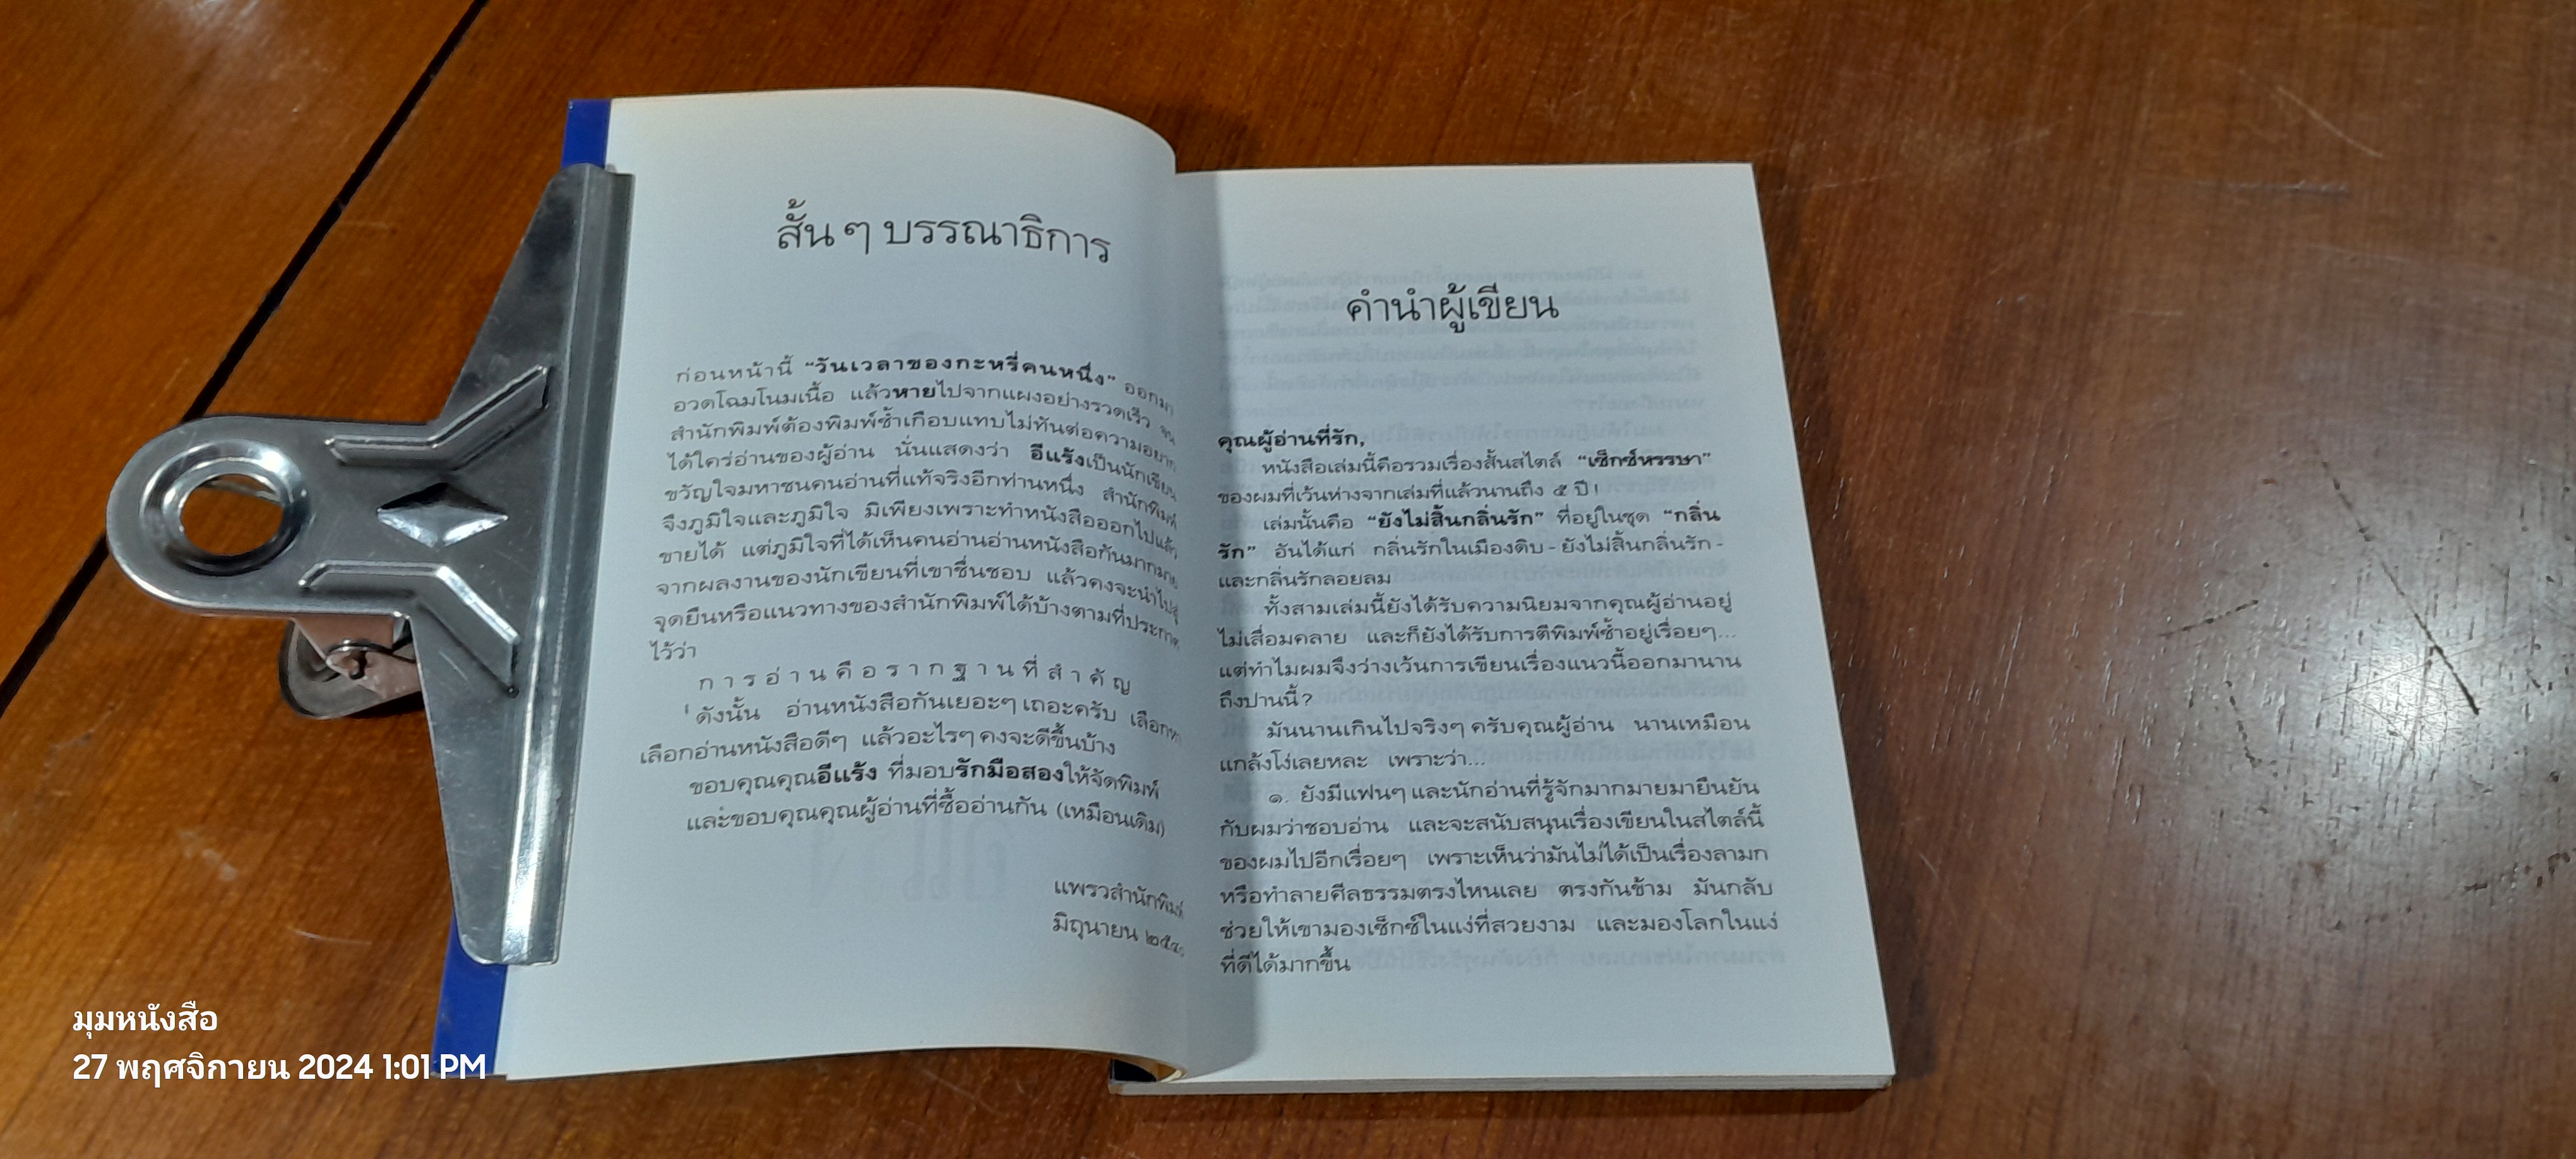 สั้น ๆ บรรณาธิการ
ก่อนหน้านี้ “วันเวลาของกะหรี่คนหนึ่ง” ออกมา
อวดโฉมโนมเนื้อ แล้วหายไปจากแผงอย่างรวดเร็ว จน
สำนักพิมพ์ต้องพิมพ์ซ้ำเกือบแทบไม่ทันต่อความอยาก
ได้ใคร่อ่านของผู้อ่าน นั่นแสดงว่า อีแร้งเป็นนักเขียน
ขวัญใจมหาชนคนอ่านที่แท้จริงอีกท่านหนึ่ง สำนักพิมพ์
จึงภูมิใจและภูมิใจ มิเพียงเพราะทำหนังสือออกไปแล้ว
ขายได้ แต่ภูมิใจที่ได้เห็นคนอ่านอ่านหนังสือกันมากมาย
จากผลงานของนักเขียนที่เขาชื่นชอบ แล้วคงจะนำไปสู่
จุดยืนหรือแนวทางของสำนักพิมพ์ได้บ้างตามที่ประกาศ
ไว้ว่า
การอ่านคือรากฐานที่สำคัญ
ดังนั้น อ่านหนังสือกันเยอะๆ เถอะครับ เลือกหา
เลือกอ่านหนังสือดีๆ แล้วอะไรๆ คงจะดีขึ้นบ้าง
ขอบคุณคุณอีแร้ง ที่มอบรักมือสองให้จัดพิมพ์
และขอบคุณคุณผู้อ่านที่ซื้ออ่านกัน (เหมือนเดิม)
แพรวสำนักพิมพ์
มิถุนายน
คำนำผู้เขียน
คุณผู้อ่านที่รัก,
หนังสือเล่มนี้คือรวมเรื่องสั้นสไตล์ “เซ็กซ์หรรษา”
ของผมที่เว้นห่างจากเล่มที่แล้วนานถึง ๕ ปี !
เล่มนั้นคือ “ยังไม่สิ้นกลิ่นรัก” ที่อยู่ในชุด “กลิ่น
รัก” อันได้แก่ กลิ่นรักในเมืองดิบ - ยังไม่สิ้นกลิ่นรัก -
และกลิ่นรักลอยลม
ทั้งสามเล่มนี้ยังได้รับความนิยมจากคุณผู้อ่านอยู่
ไม่เสื่อมคลาย และก็ยังได้รับการตีพิมพ์ซ้ำอยู่เรื่อยๆ...
แต่ทำไมผมจึงว่างเว้นการเขียนเรื่องแนวนี้ออกมานาน
ถึงปานนี้ ?
มันนานเกินไปจริงๆ ครับคุณผู้อ่าน นานเหมือน
แกล้งโง่เลยหละ เพราะว่า...
๑. ยังมีแฟนๆ และนักอ่านที่รู้จักมากมายมายืนยัน
กับผมว่าชอบอ่าน และจะสนับสนุนเรื่องเขียนในสไตล์นี้
ของผมไปอีกเรื่อยๆ เพราะเห็นว่ามันไม่ได้เป็นเรื่องลามก
หรือทำลายศีลธรรมตรงไหนเลย ตรงกันข้าม มันกลับ
ช่วยให้เขามองเซ็กซ์ในแง่ที่สวยงาม และมองโลกในแง่
ที่ดีได้มากขึ้น
มุมหนังสือ
27 พฤศจิกายน 2024 1:01 PM